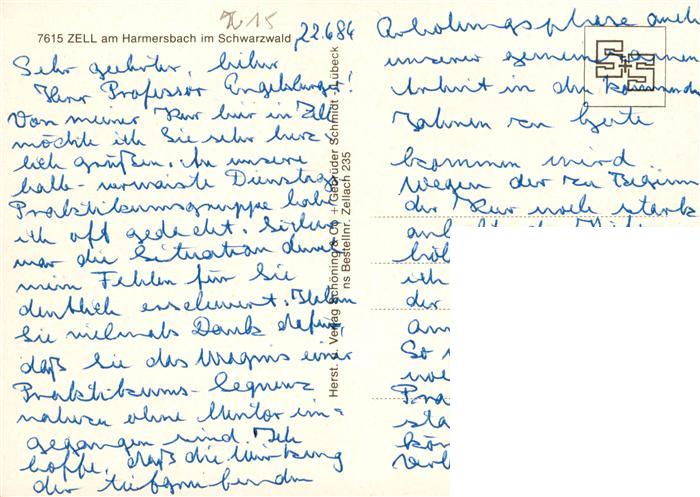 π 15
7615 ZELL am Harmersbach im Schwarzwald, 22.6.84
Sehr geehrter, lieber
Herr Professor Engelsberger!
Von meiner Kur hier in Zell
möchte ich Sie sehr herz-
lich grüßen. An unsere
halb-verwaiste Dienstag
Praktikumsgruppe habe
ich oft gedacht. Sicher
war die Situation durch
mein Fehlen für Sie
deutlich erschwert. Haben
Sie vielmals Dank dafür,
daß Sie das Wagnis einer
Praktikums-Sequenz
nahezu ohne Mentor ein-
gegangen sind. Ich
hoffe, daß die Wirkung
der tiefgreifenden
Herst. u. Verlag Schöning & Co + Gebrüder Schmidt Lübeck
ns Bestellnr. Zellach 235
Erholungsphase auch
unserer gemeinsamen
Arbeit in den kommenden
Jahren zu Gute
kommen wird.
Wegen der zu Beginn
der Kur noch stark
ich
der
So